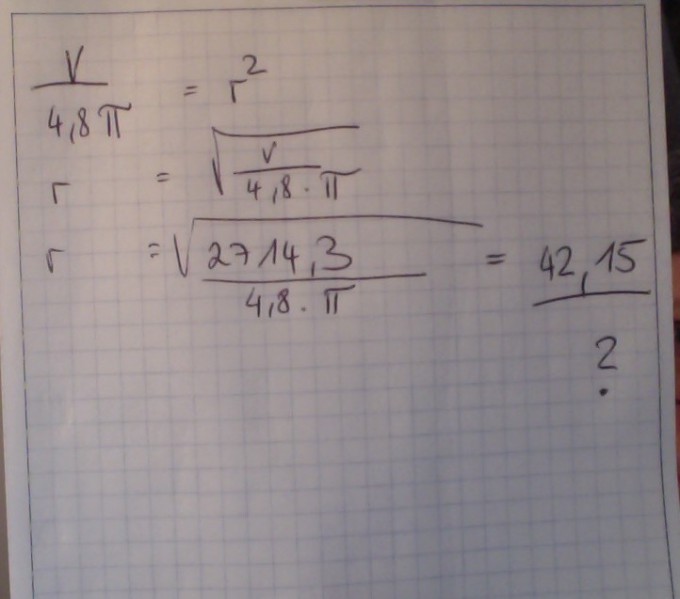 V/4,8π = r²
r = √(v/4,8·π)
r = √(2714,3/4,8·π) = 42,15
?